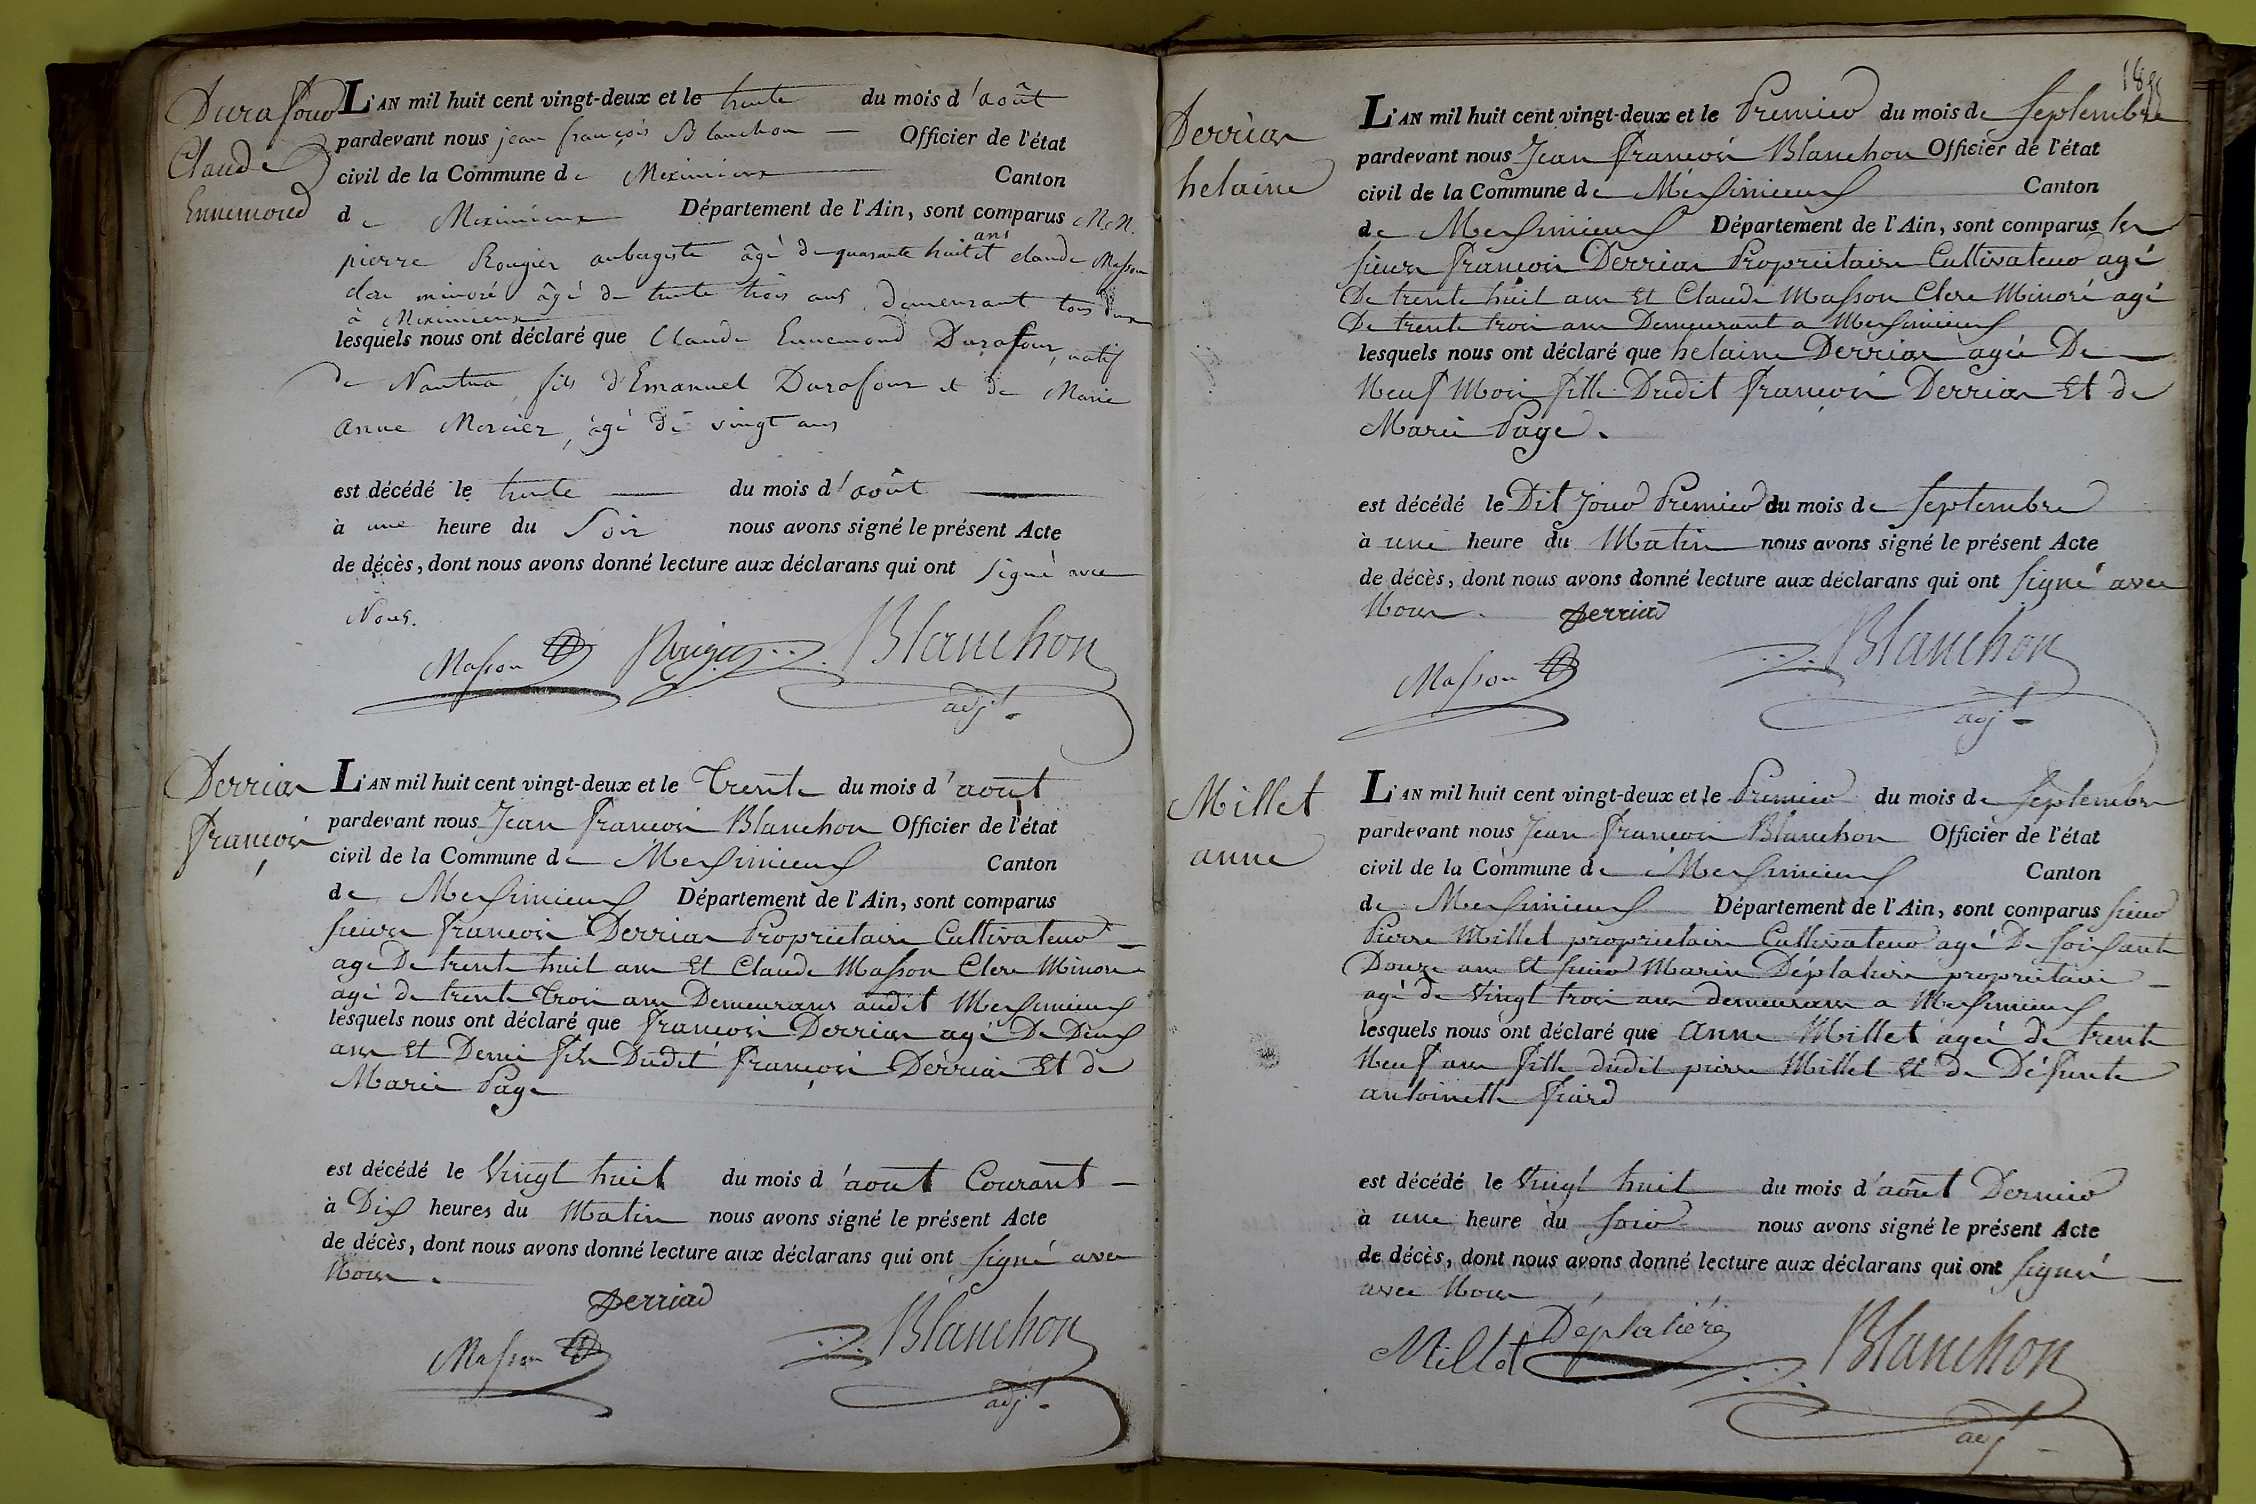 Durafour
Claude
Ennemond
L'AN mil huit cent vingt-deux et le trente du mois d'août
pardevant nous jean françois Blanchon — Officier de l'état
civil de la Commune de Meximieux Canton
de Meximieux Département de l'Ain, sont comparus M.M.
pierre Rougier aubergiste âgé de quarante huit ans et claude Masson
clerc minoré âgé de trente trois ans demeurant tous deux
à Meximieux
lesquels nous ont déclaré que Claude Ennemond Durafour, natif
de Nantua, fils d'Emanuel Durafour et de Marie
Anne Mercier, âgé de vingt ans
est décédé le trente — du mois d'août —
à une heure du Soir nous avons signé le présent Acte
de décès, dont nous avons donné lecture aux déclarans qui ont signé avec
Nous.
Masson Rougier Blanchon
adjt.
Derriar
françois
L'AN mil huit cent vingt-deux et le Trente du mois d'aout
pardevant nous Jean françois Blanchon Officier de l'état
civil de la Commune de Messimieux Canton
de Messimieux Département de l'Ain, sont comparus
sieurs françois Derriar Proprietaire Cultivateur —
agé De trente huit ans Et Claude Masson Clerc Minoré
agé de trente Trois ans Demeurans audit Messimieux
lesquels nous ont déclaré que françois Derriar agé De Deux
ans Et Demi fils Dudit françois Derriar Et de
Marie Page
est décédé le Vingt huit du mois d'aout Courant —
à Dix heures du Matin nous avons signé le présent Acte
de décès, dont nous avons donné lecture aux déclarans qui ont signé avec
Nous.
Derriad
Masson Blanchon
adjt.
Derriar
helaine
L'AN mil huit cent vingt-deux et le Premier du mois de septembre
pardevant nous Jean françois Blanchon Officier de l'état
civil de la Commune de Messimieux Canton
de Messimieux Département de l'Ain, sont comparus les
sieurs françois Derriar Proprietaire Cultivateur agé
De trente huit ans Et Claude Masson Clerc Minoré agé
De trente trois ans Demeurant a Messimieux
lesquels nous ont déclaré que helaine Derriar agée De —
Neuf Mois fille Dudit françois Derriar Et de
Marie Page.
est décédé le Dit Jour Premier du mois de septembre
à une heure du Matin nous avons signé le présent Acte
de décès, dont nous avons donné lecture aux déclarans qui ont signé avec
Nous. Derriad
Masson Blanchon
adjt.
Millet
anne
L'AN mil huit cent vingt-deux et le Premier du mois de septembre
pardevant nous Jean françois Blanchon Officier de l'état
civil de la Commune de Messimieux Canton
de Messimieux Département de l'Ain, sont comparus sieur
Pierre Millet proprietaire Cultivateur agé De soisante
Douze ans Et sieur Marin Déplatiere proprietaire —
agé de Vingt trois ans demeurans a Messimieux
lesquels nous ont déclaré que anne Millet agée de trente
Neuf ans fille dudit pierre Millet Et de Défunte
antoinette
est décédé le Vingt huit du mois d'août Dernier
à une heure du soir nous avons signé le présent Acte
de décès, dont nous avons donné lecture aux déclarans qui ont signé —
avec Nous
Millet Déplatiére Blanchon
adjt